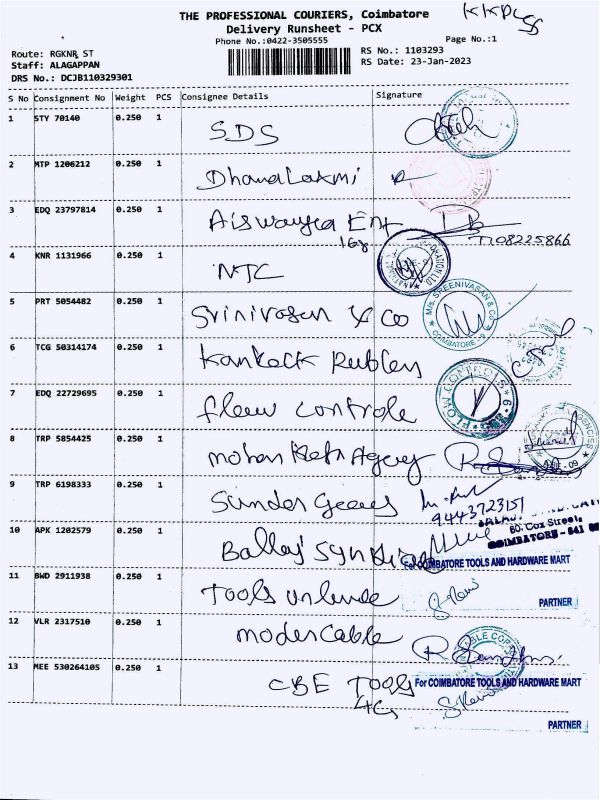 KKPL
THE PROFESSIONAL COURIERS, Coimbatore
Delivery Runsheet - PCX
Phone No.:0422-3505555
Page No.:1
Route: RGKNR ST
RS No.: 1103293
Staff: ALAGAPPAN
RS Date: 23-Jan-2023
DRS No.: DCJB110329301
S No Consignment No Weight PCS Consignee Details Signature
1 STY 70140 0.250 1 SDS
2 MTP 1206212 0.250 1 Dhanalaxmi
3 EDQ 23797814 0.250 1 Aiswarya Ent
168
7708225866
4 KNR 1131966 0.250 1 NTC
5 PRT 5054482 0.250 1 Srinivasan & Co
M/s. SREENIVASAN & Co
COIMBATORE - 9
6 TCG 50314174 0.250 1
7 EDQ 22729695 0.250 1 flow controle
FLOW CONTROLS
8 TRP 5854425 0.250 1 mohan Agency
9 TRP 6198333 0.250 1 Sundar Gears
9443723151
60, Cox Street,
COIMBATORE - 641
10 APK 1202579 0.250 1 Ballaji
For COIMBATORE TOOLS AND HARDWARE MART
11 BWD 2911938 0.250 1 Tools
PARTNER
12 VLR 2317510 0.250 1 moder cable
13 MEE 530264105 0.250 1 CBE Tools
For COIMBATORE TOOLS AND HARDWARE MART
PARTNER